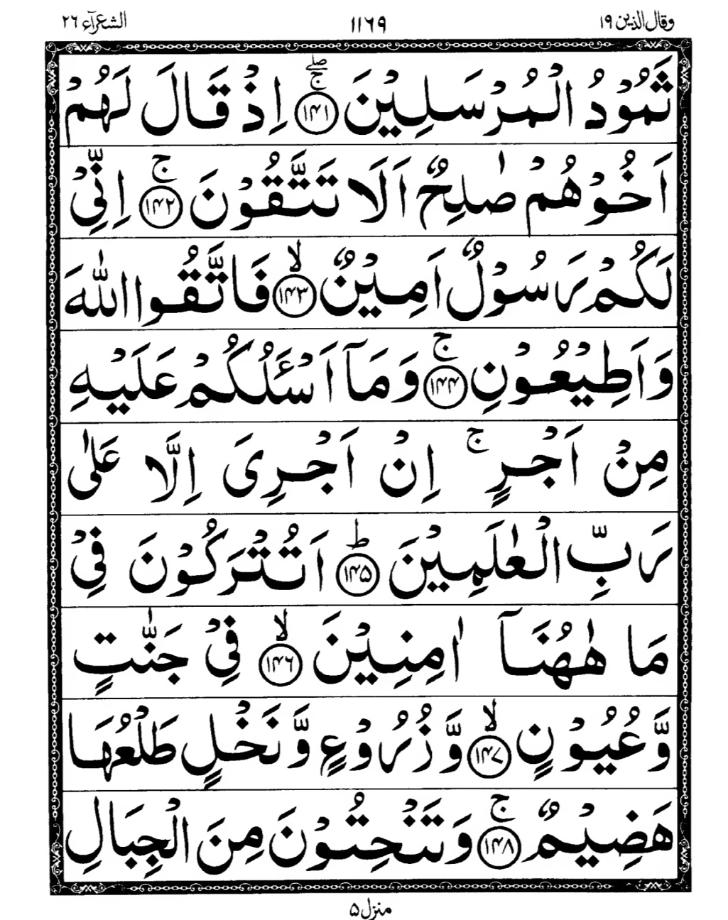 وقال الذین ۱۹ ۱۱۶۹ الشعرآء ۲۶
ثَمُوۡدُ الۡمُرۡسَلِیۡنَ ﴿۱۴۱﴾ۚۖ اِذۡ قَالَ لَہُمۡ
اَخُوۡہُمۡ صٰلِحٌ اَلَا تَتَّقُوۡنَ ﴿۱۴۲﴾ۚ اِنِّیۡ
لَکُمۡ رَسُوۡلٌ اَمِیۡنٌ ﴿۱۴۳﴾ۙ فَاتَّقُوا اللّٰہَ
وَاَطِیۡعُوۡنِ ﴿۱۴۴﴾ۚ وَمَاۤ اَسۡـَٔلُکُمۡ عَلَیۡہِ
مِنۡ اَجۡرٍ ۚ اِنۡ اَجۡرِیَ اِلَّا عَلٰی
رَبِّ الۡعٰلَمِیۡنَ ﴿۱۴۵﴾ؕ اَتُتۡرَکُوۡنَ فِیۡ
مَا ہٰہُنَاۤ اٰمِنِیۡنَ ﴿۱۴۶﴾ۙ فِیۡ جَنّٰتٍ
وَّعُیُوۡنٍ ﴿۱۴۷﴾ۙ وَّزُرُوۡعٍ وَّنَخۡلٍ طَلۡعُہَا
ہَضِیۡمٌ ﴿۱۴۸﴾ۚ وَتَنۡحِتُوۡنَ مِنَ الۡجِبَالِ
منزل ۵